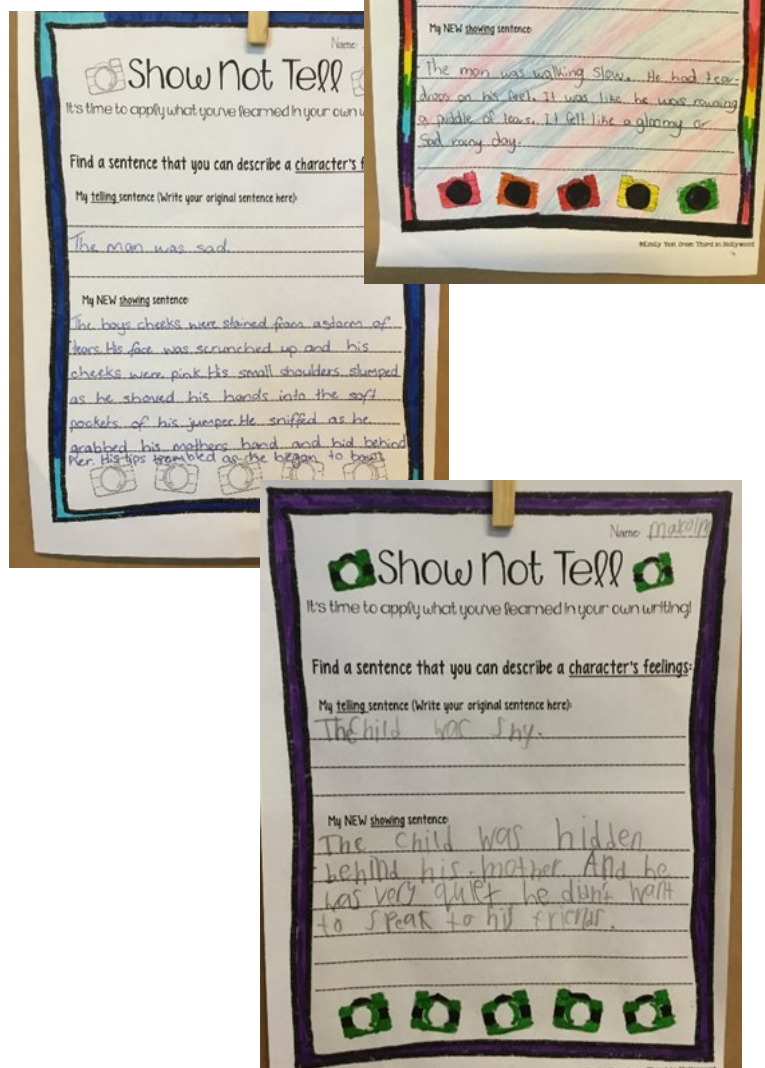 Name:
Show Not Tell
It's time to apply what you've learned in your own w
Find a sentence that you can describe a character's f
My telling sentence (Write your original sentence here):
The man was sad.
My NEW showing sentence:
The boys cheeks were stained from a storm of
tears. His face was scrunched up and his
cheeks were pink. His small shoulders slumped
as he shoved his hands into the soft
pockets of his jumper. He sniffed as he
grabbed his mothers hand and hid behind
her. His lips trembled as he began to
My NEW showing sentence:
The man was walking slow. He had tear-
drops on his feet. It was like he was rowing
a puddle of tears. It felt like a gloomy or
sad rainy day.
©Emily Yost from Third in Hollywood
Name: Makolm
Show Not Tell
It's time to apply what you've learned in your own writing!
Find a sentence that you can describe a character's feelings:
My telling sentence (Write your original sentence here):
The child was shy.
My NEW showing sentence:
The child was hidden
behind his mother And he
was very quiet he didn't want
to speak to his friends.